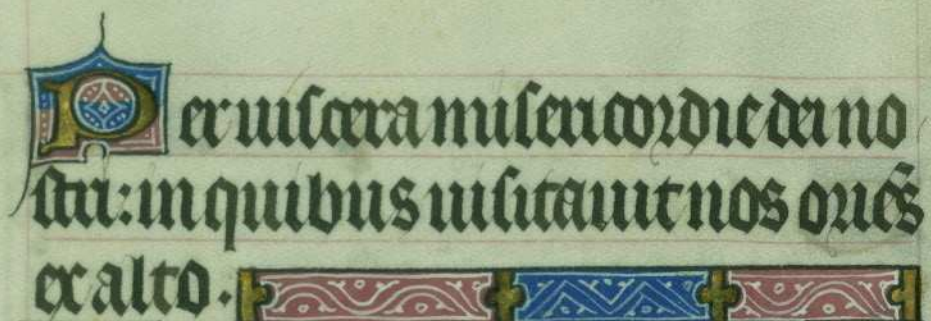 Per uiscera misericordie dei no
stri: in quibus uisitauit nos oriēs
ex alto.